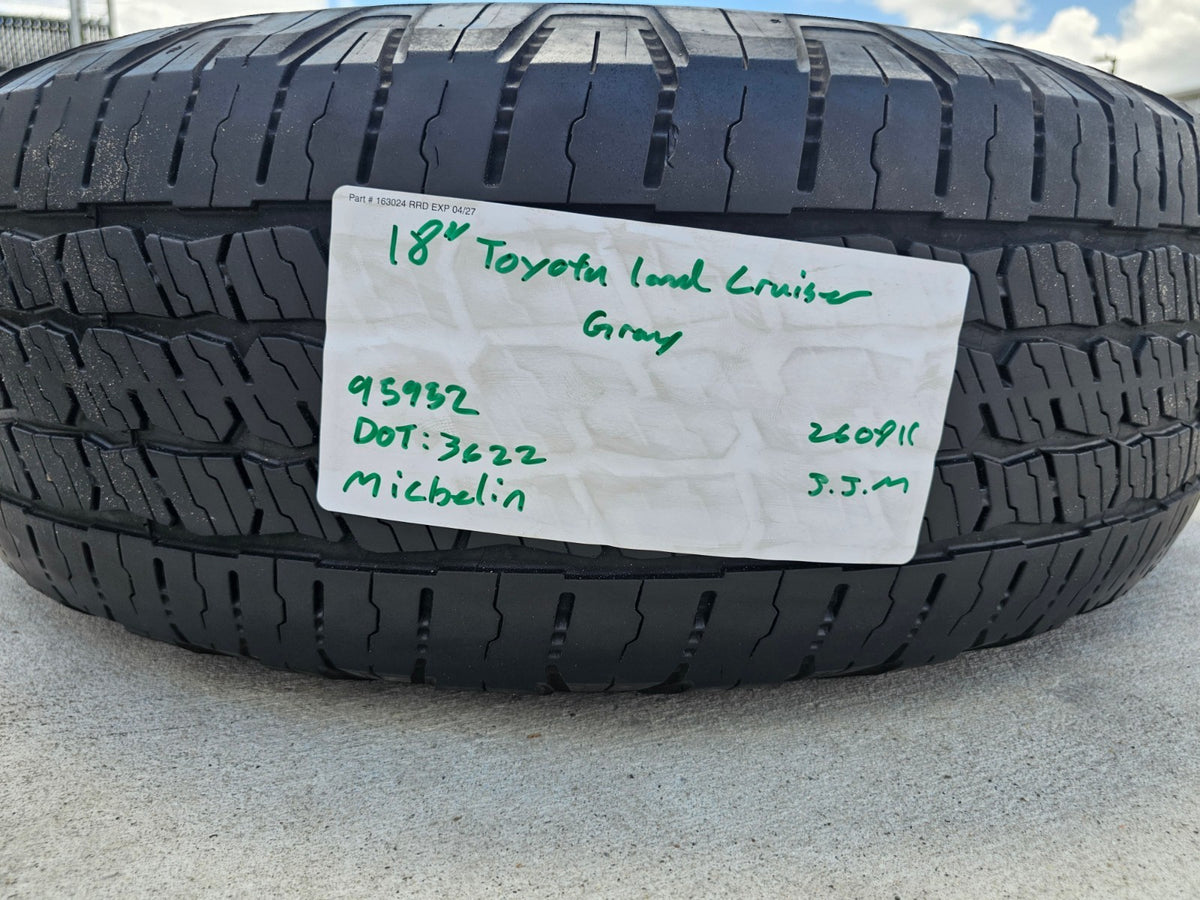 Part # 163024 RRD EXP 04/27
18" Toyota Land Cruiser
Gray
95952
DOT: 3622
Michelin
260911
J.J.M